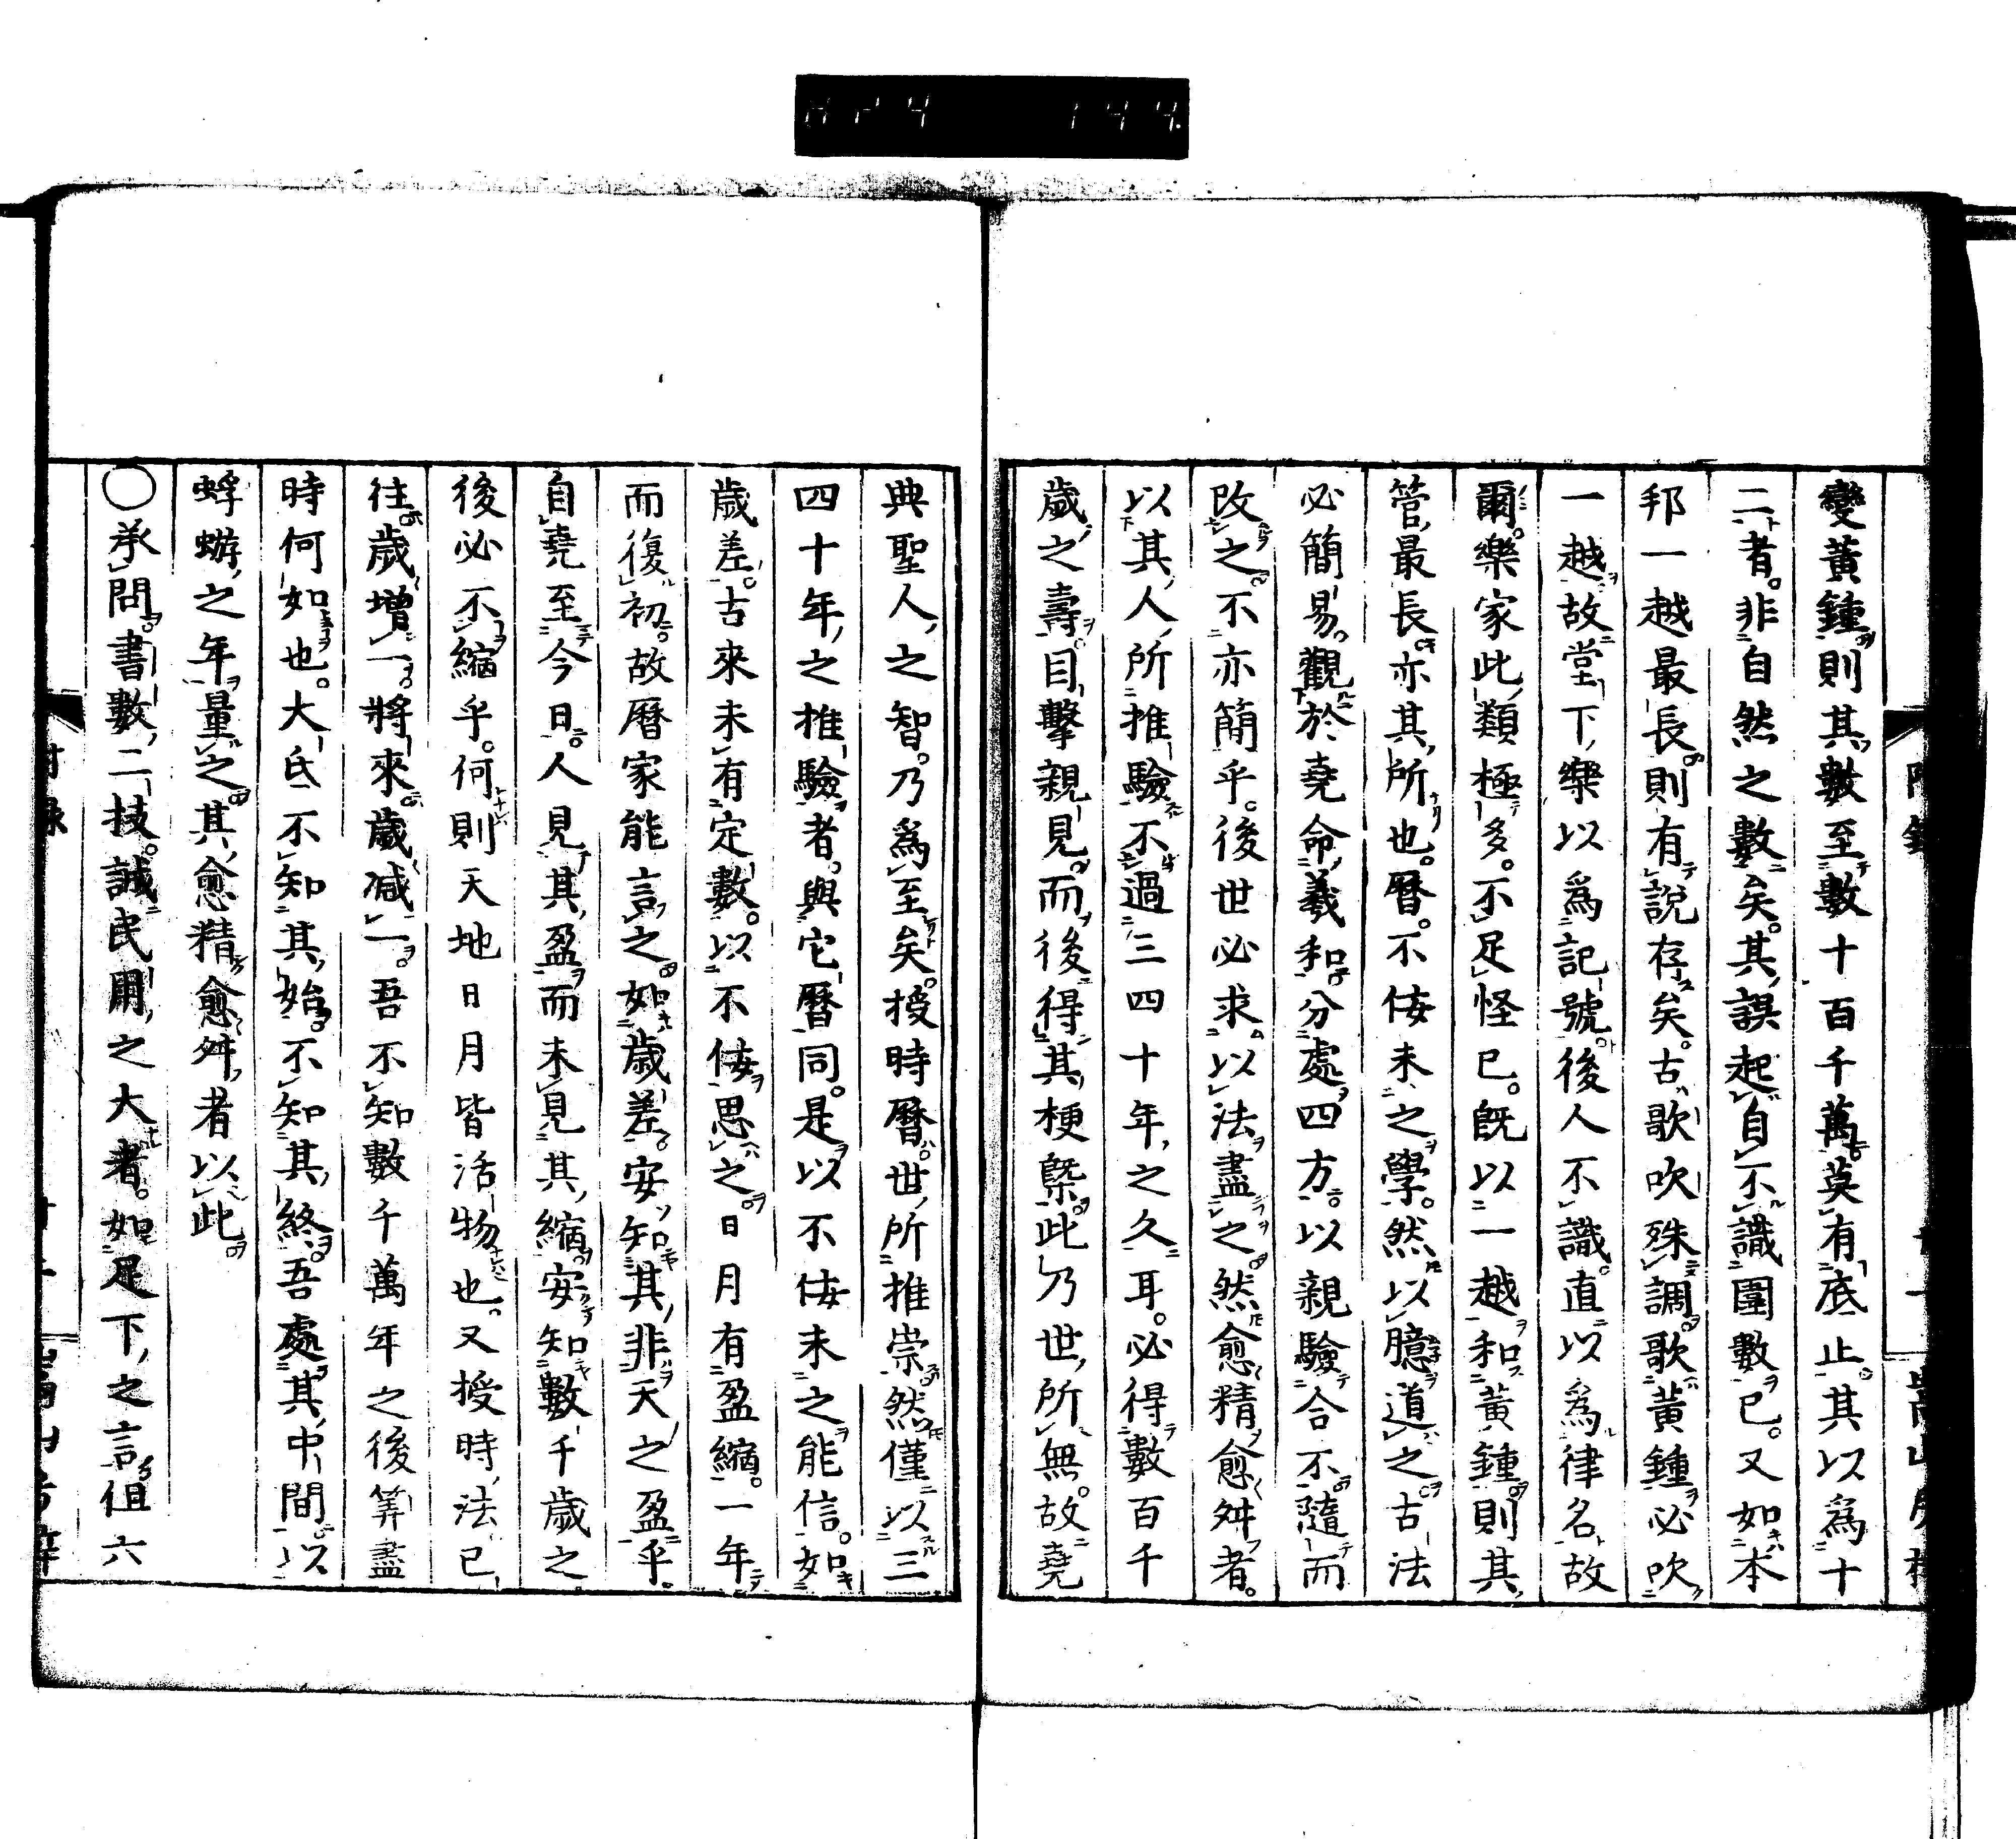 變黃鍾則其數至數十百千萬莫有底止其以爲十
二者。非自然之數矣。其誤起自不識圍數已。又如本
邦一越最長則有說存矣。古歌吹殊調歌黃鍾必吹
一越故堂下樂以爲記號後人不識。直以爲律名故
爾。樂家此類極多。不足怪已。既以一越和黃鍾則其
管最長亦其所也。曆。不侫未之學。然以臆道之古法
必簡易。觀於堯命羲和分處四方。以親驗合不隨而
改之不亦簡乎。後世必求以法盡之。然愈精愈舛者。
以其人所推驗不過三四十年之久耳。必得數百千
歲之壽目擊親見而後得其梗槩此乃世所無。故堯
典聖人之智。乃爲至矣。授時曆世所推崇然僅以三
四十年之推驗者。與它曆同。是以不侫未之能信。如
歲差。古來未有定數。以不侫思之日月有盈縮。一年
而復初。故曆家能言之如歲差。安知其非天之盈乎。
自堯至今日。人見其盈而未見其縮安知數千歲之
後必不縮乎。何則天地日月皆活物也。又授時法已
往歲增一。將來歲減一。吾不知數千萬年之後筭盡
時何如也。大氐不知其始。不知其終。吾處其中間以
蜉蝣之年量之其愈精愈舛者以此
○承問書數二技。誠民用之大者。如足下之言但六